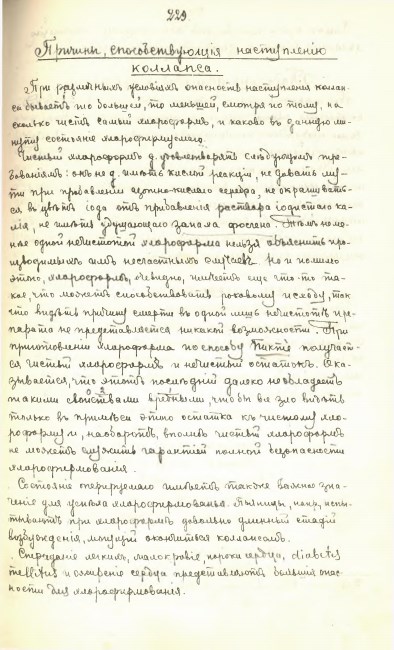 229
Причины, способствующія наступленію
коллапса.
При различныхъ условіяхъ опасность наступленія коллап-
са бываетъ то большей, то меньшей, смотря по тому, на
сколько чистъ самый хлороформъ, и каково въ данную ми-
нуту состояніе хлороформируемаго.
Чистый хлороформъ д. удовлетворять слѣдующимъ тре-
бованіямъ: онъ не д. имѣть кислой реакціи, не давать му-
ти при прибавленіи азотно-кислаго серебра, не окрашиватъ-
ся въ цвѣтъ іода отъ прибавленія раствора іодистаго ка-
лія, не имѣть удушающаго запаха фосгена. Тѣмъ не ме-
нѣе одной нечистотой хлороформа нельзя объяснить про-
изводимыхъ имъ несчастныхъ случаевъ. Но и помимо
этого, хлороформъ, очевидно, имѣетъ еще что-то та-
кое, что можетъ способствовать роковому исходу, такъ
что видѣть причину смерти въ одной лишь нечистотѣ пре-
парата не представляется никакой возможности. При
приготовленіи хлороформа по способу Пиктэ получает-
ся чистый хлороформъ и нечистый остатокъ. Ока-
зывается, что этотъ послѣдній далеко не обладаетъ
такими свойствами вредными, чтобы все зло видѣть
только въ примѣси этого остатка къ чистому хло-
роформу и, наоборотъ, вполнѣ чистый хлороформъ
не можетъ служить гарантіей полной безопасности
хлороформированія.
Состояніе оперируемаго имѣетъ также важное зна-
ченіе для успѣха хлороформированья. Пьяницы, напр., испы-
тываютъ при хлороформѣ довольно длинный стадій
возбужденія, могущій окончиться коллапсомъ.
Страданіе легкихъ, малокровіе, пороки сердца, diabetes
mellitus и ожиреніе сердца представляютъ большія опас-
ности для хлороформированія.